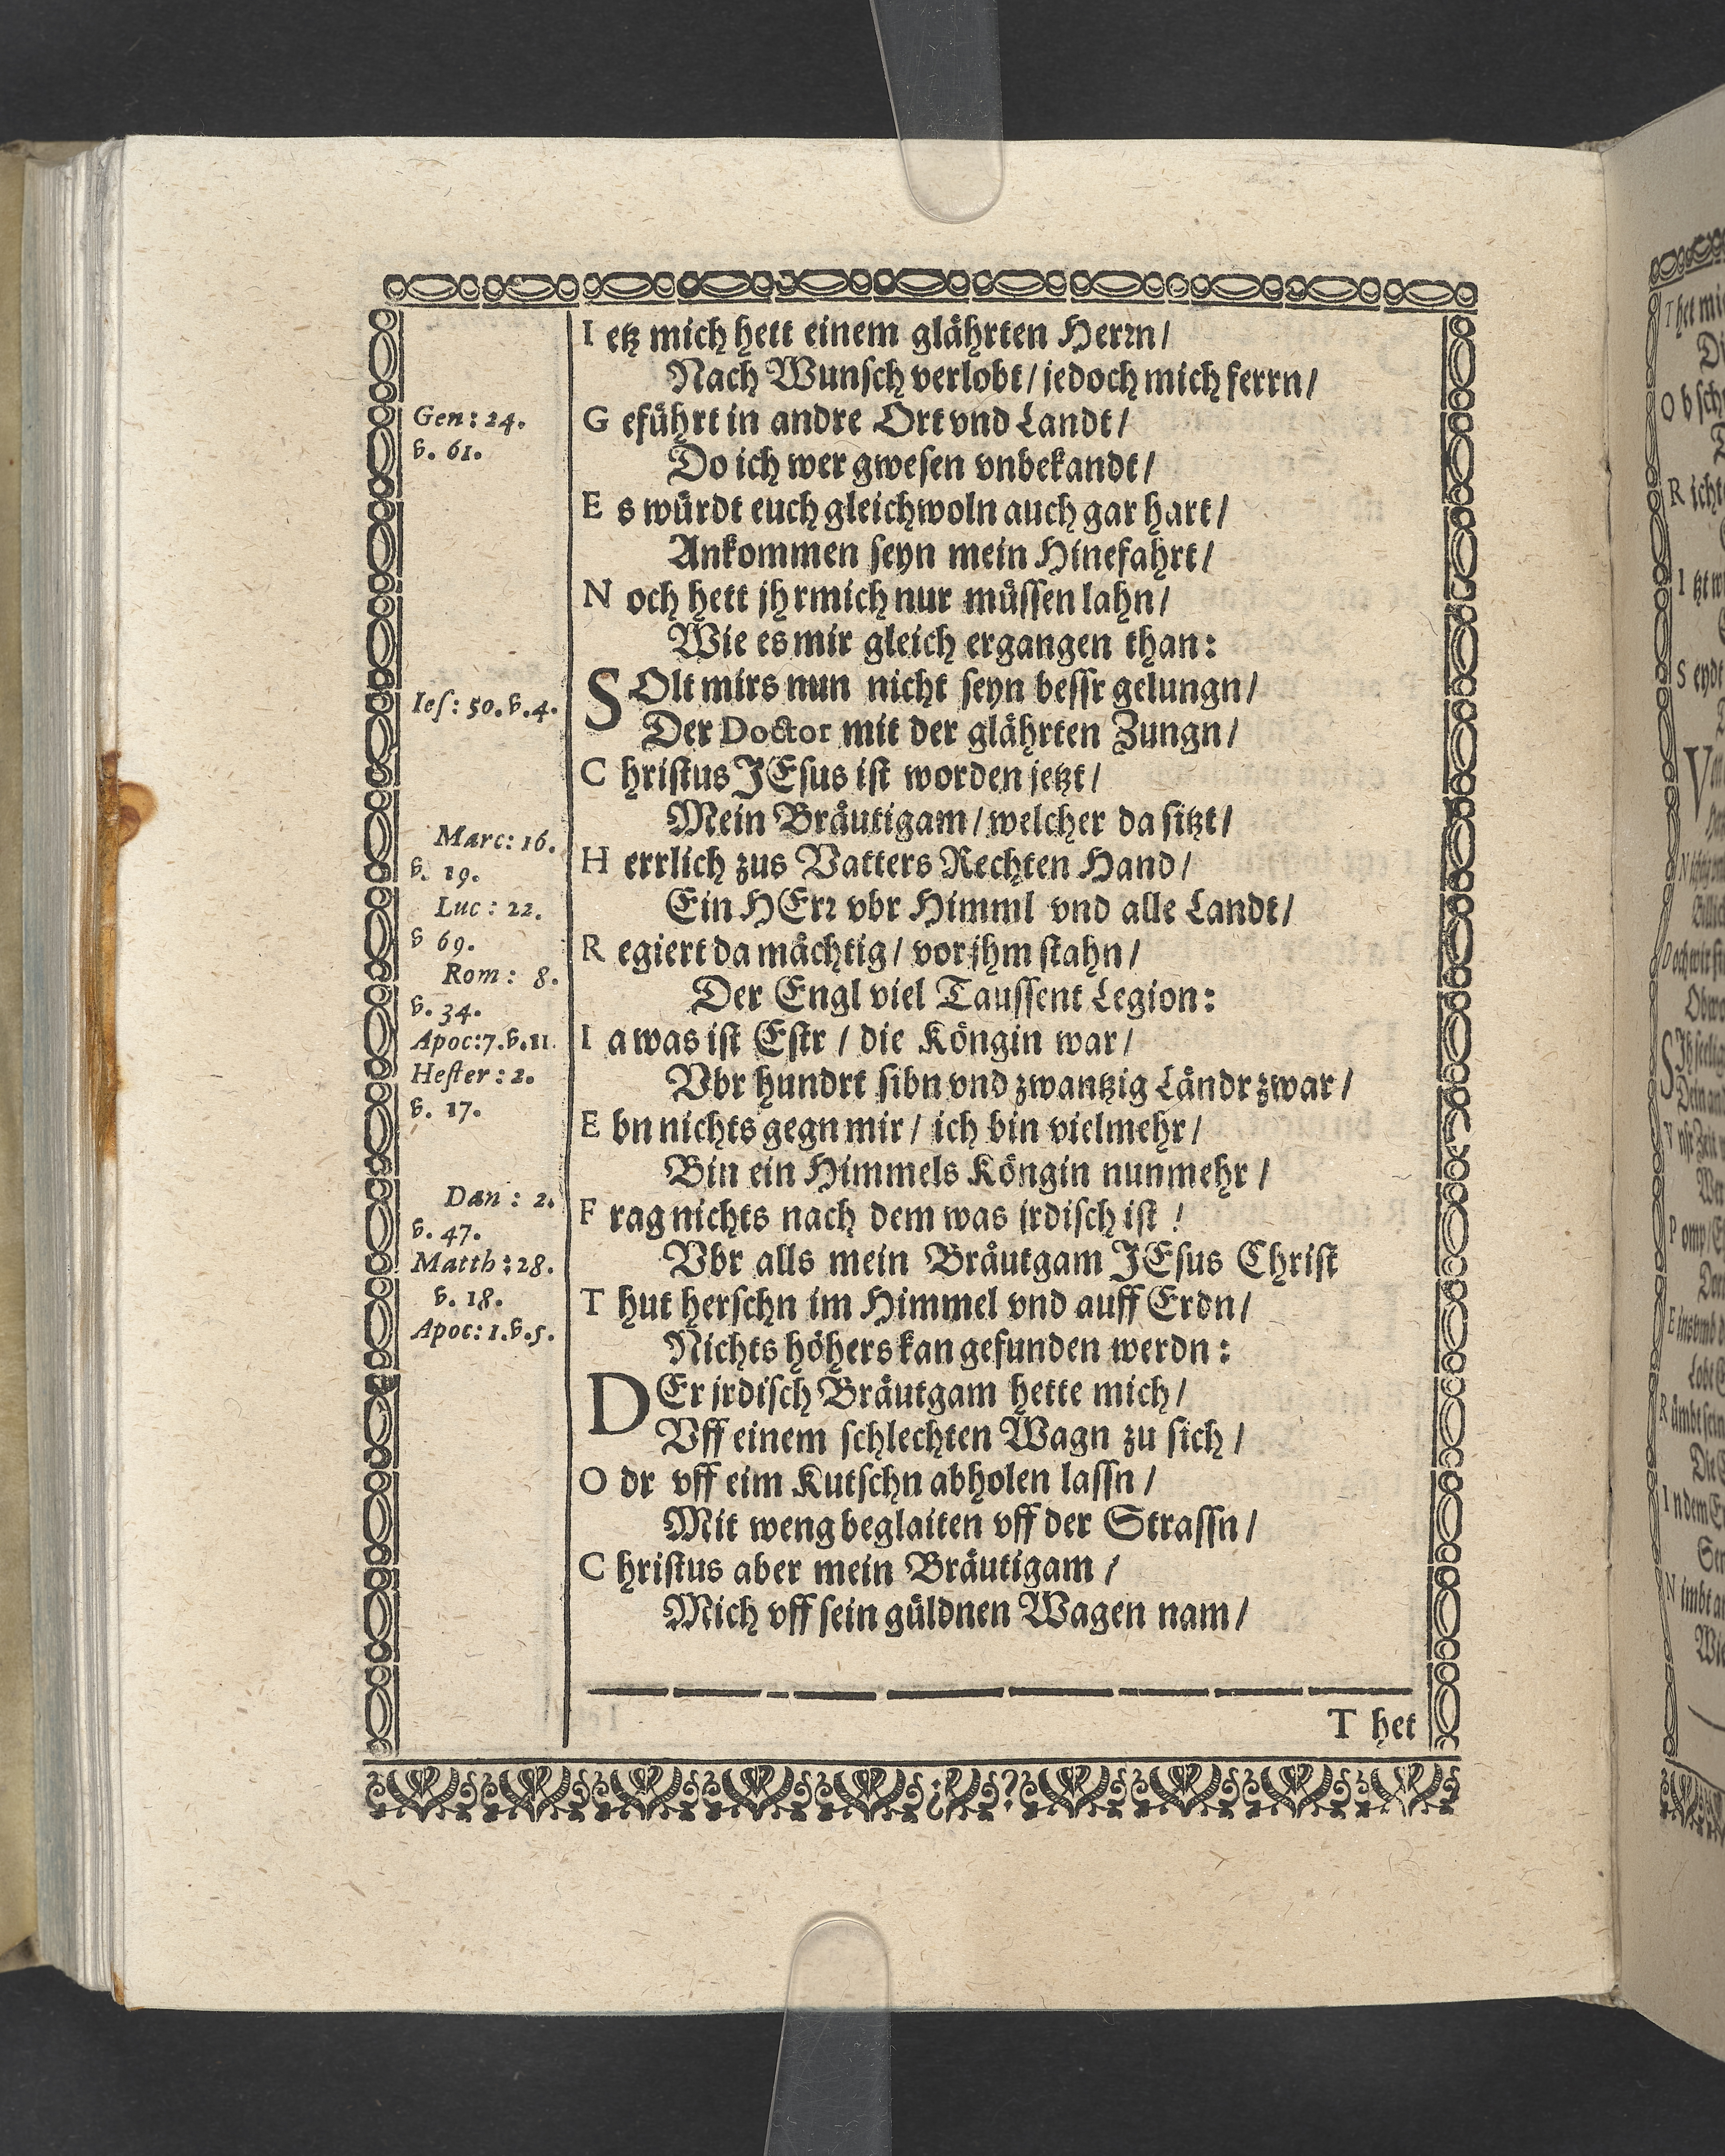 I etz mich hett einem glährten Herrn/
Nach Wunsch verlobt/ jedoch mich ferrn/
G eführt in andre Ort vnd Landt/
Do ich wer gwesen vnbekandt/
E s würdt euch gleichwoln auch gar hart/
Ankommen seyn mein Hinefahrt/
N och hett jhr mich nur müssen lahn/
Wie es mir gleich ergangen than:
SOlt mirs nun nicht seyn bessr gelungn/
Der Doctor mit der glährten Zungn/
C hristus JEsus ist worden jetzt/
Mein Bräutigam/ welcher da sitzt/
H errlich zus Vatters Rechten Hand/
Ein HErr vbr Himml vnd alle Landt/
R egiert da mächtig/ vor jhm stahn/
Der Engl viel Taussent Legion:
I a was ist Estr/ die Köngin war/
Vbr hundrt sibn vnd zwantzig Ländr zwar/
E bn nichts gegn mir/ ich bin vielmehr/
Bin ein Himmels Köngin nunmehr/
F rag nichts nach dem was jrdisch ist/
Vbr alls mein Bräutgam JEsus Christ
T hut herschn im Himmel vnd auff Erdn/
Nichts höhers kan gefunden werdn:
DEr jrdisch Bräutgam hette mich/
Vff einem schlechten Wagn zu sich/
O dr vff eim Kutschn abholen lassn/
Mit weng beglaiten vff der Strassn/
C hristus aber mein Bräutigam/
Mich vff sein güldnen Wagen nam/
T het
Gen: 24.
v. 61.
Ies: 50. v. 4.
Marc: 16.
v. 19.
Luc: 22.
v 69.
Rom: 8.
v. 34.
Apoc: 7. v. 11.
Hester: 2.
v. 17.
Dan: 2.
v. 47.
Matth: 28.
v. 18.
Apoc: 1. v. 5.